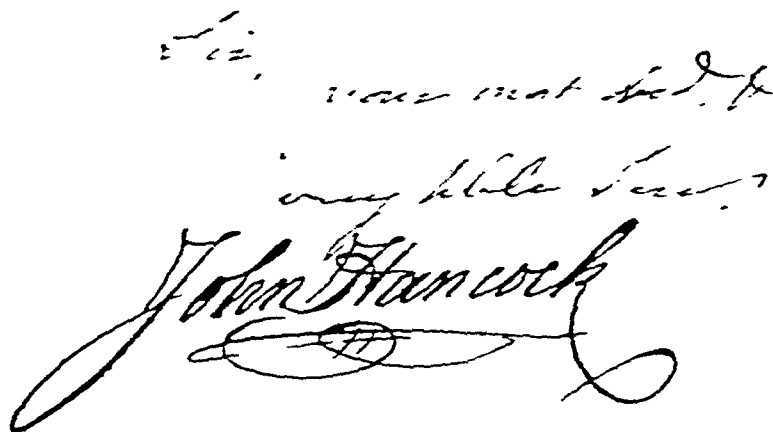 Sir,
your most obed. &
very hble Serv.
John Hancock